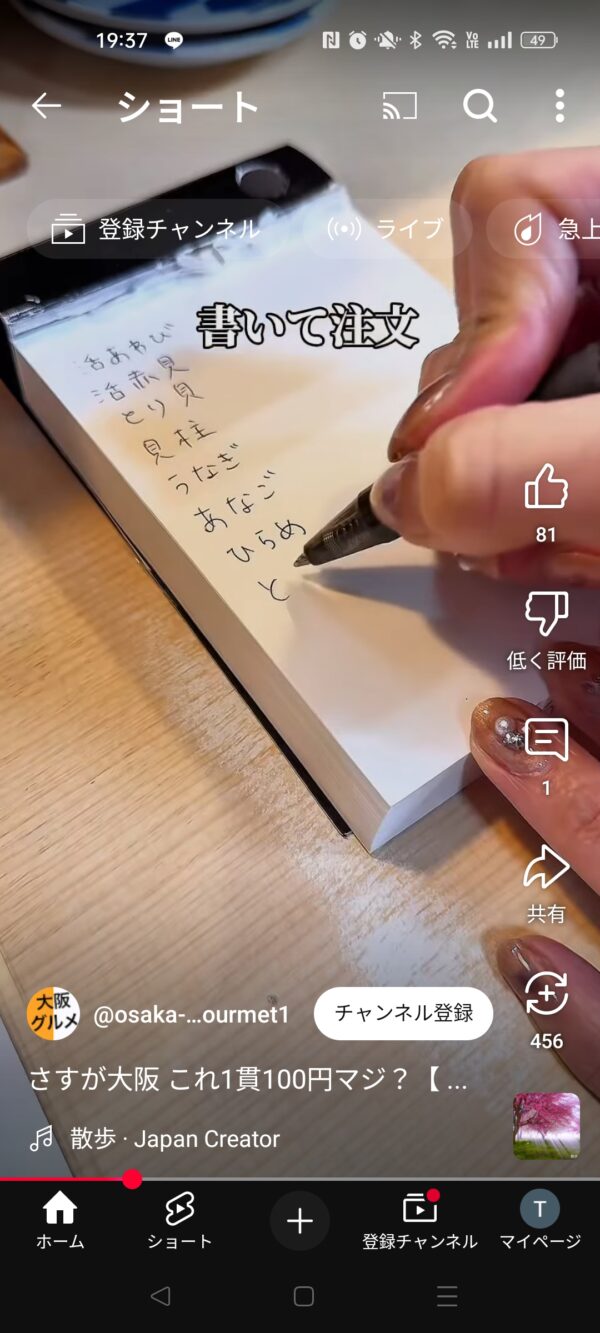 19:37 LINE VO LTE 49
ショート
登録チャンネル ライブ 急上
書いて注文
活あわび
活赤貝
とり貝
貝柱
うなぎ
あなご
ひらめ
と
81
低く評価
1
共有
456
大阪
グルメ
@osaka-...ourmet1 チャンネル登録
さすが大阪 これ1貫100円マジ？【 ...
散歩 · Japan Creator
ホーム ショート 登録チャンネル T マイページ